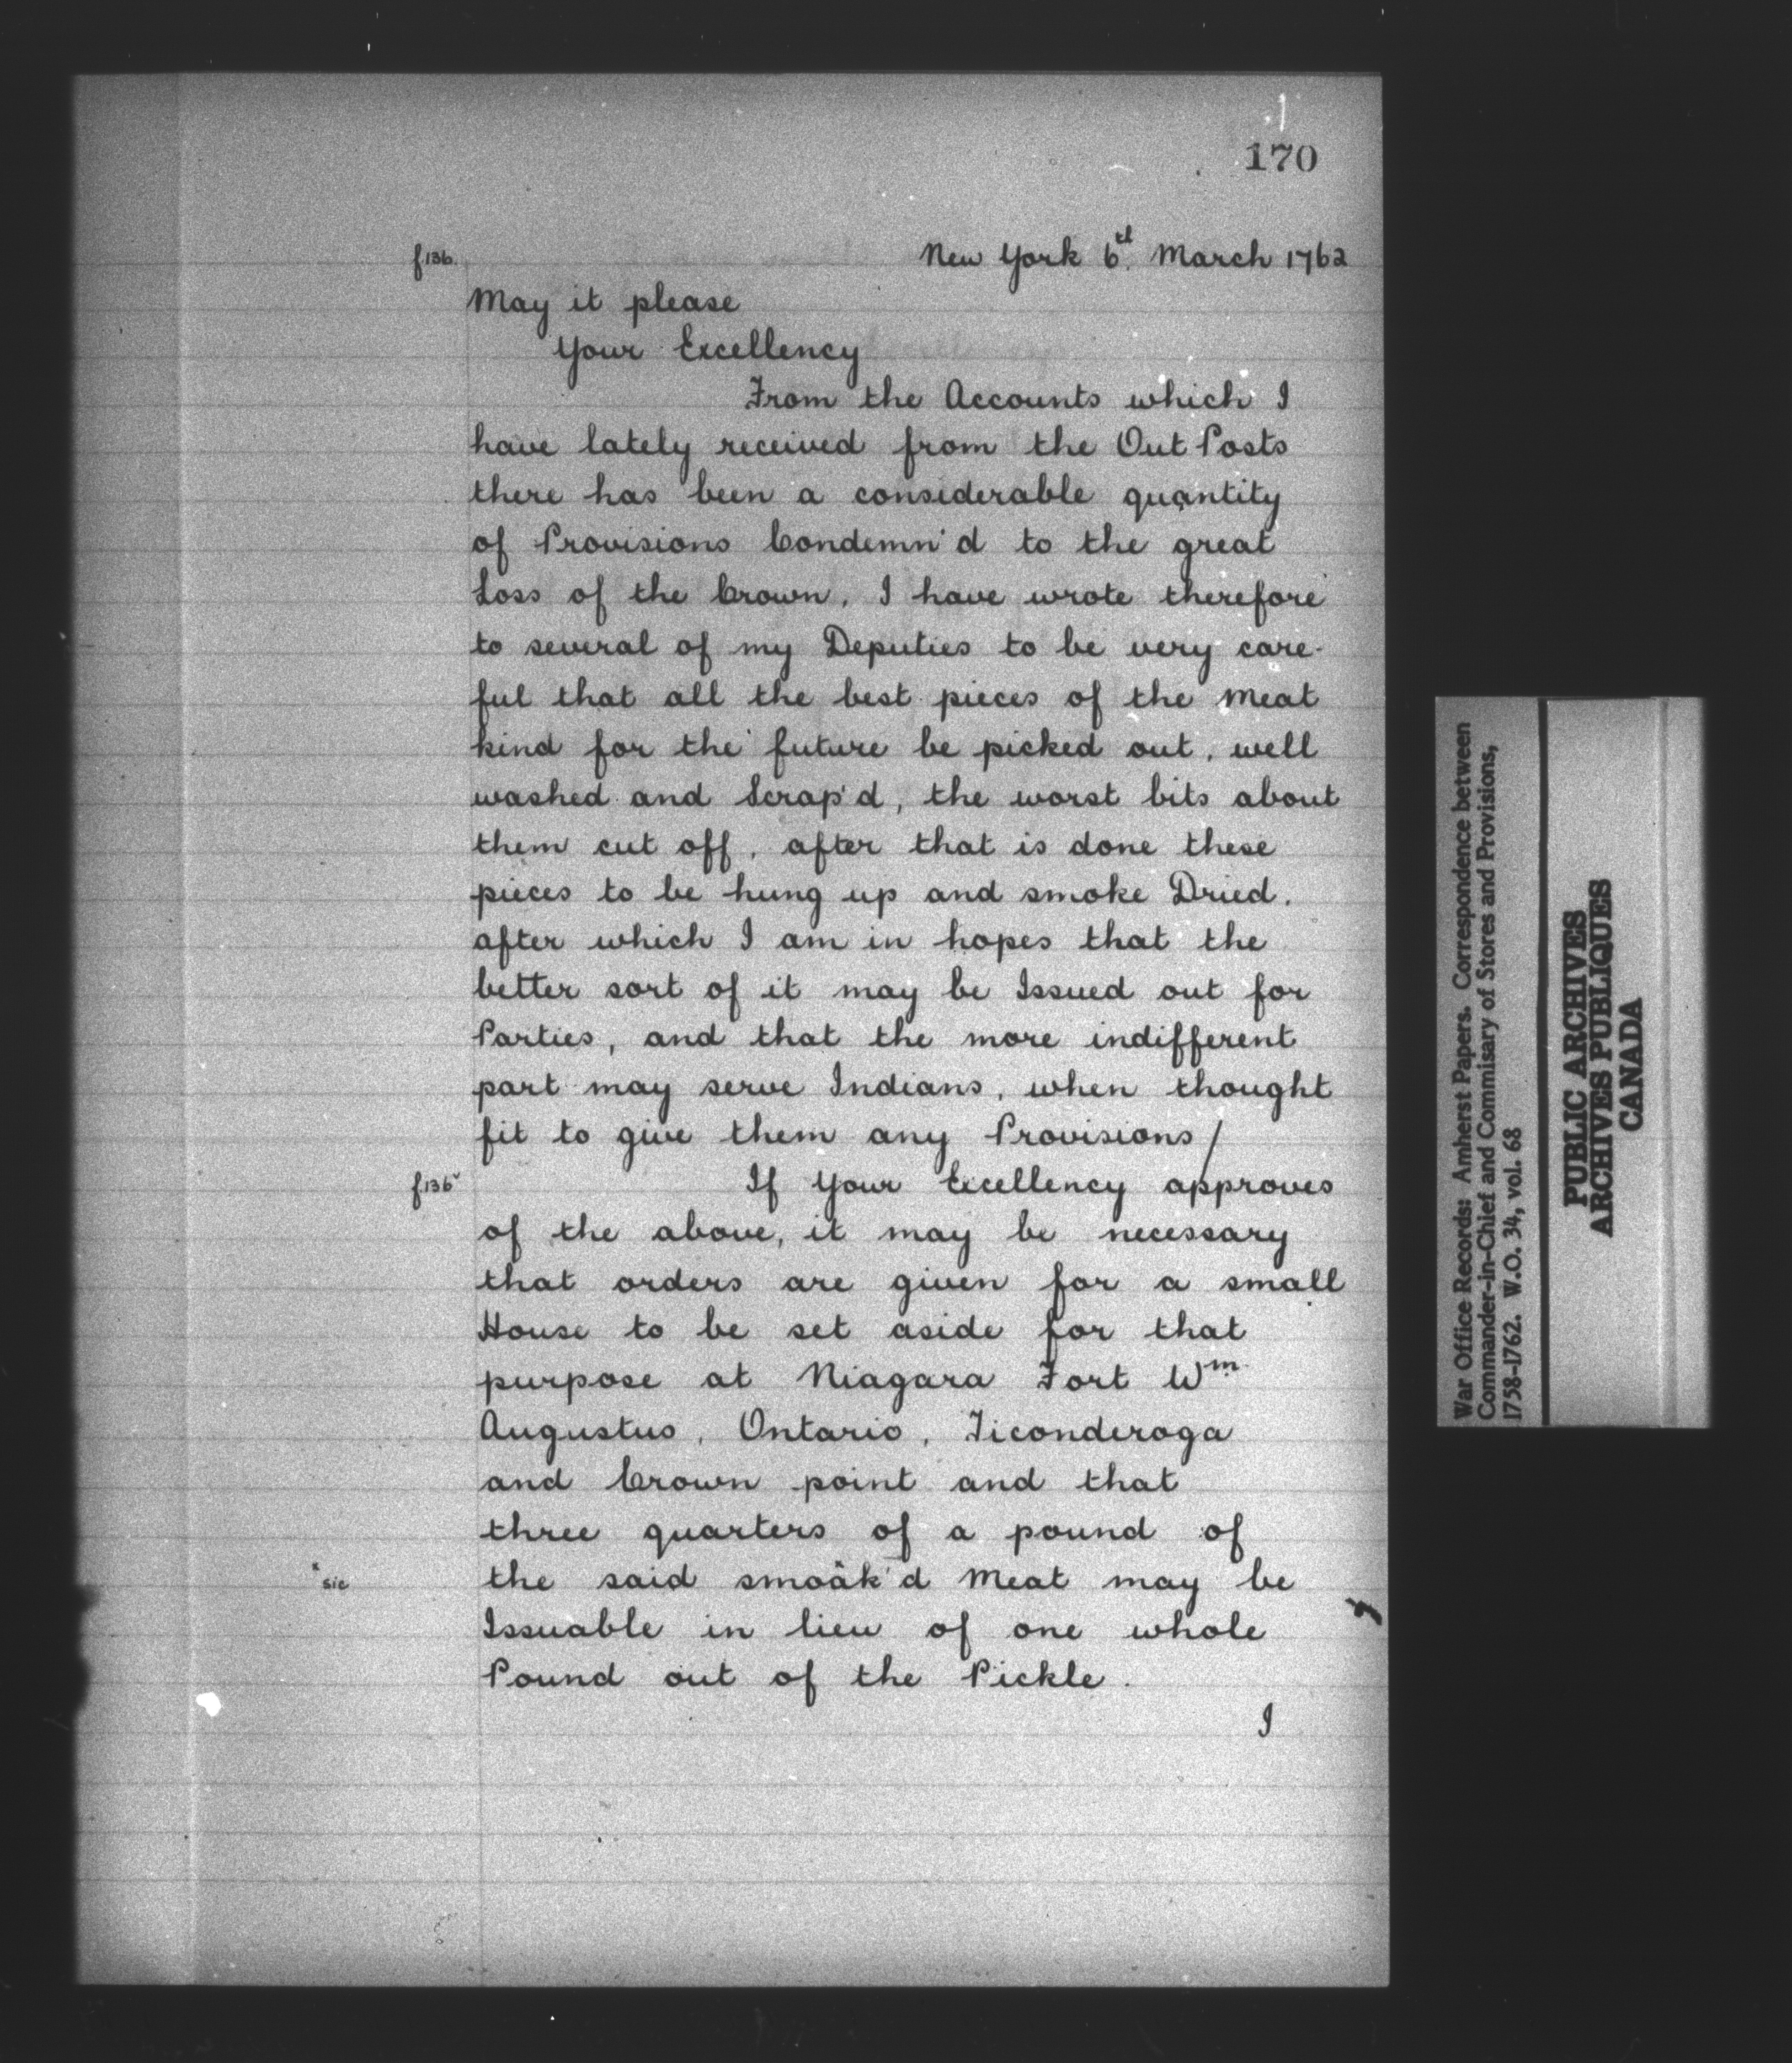 170
f.136.
New York 6th. March 1762
May it please
Your Excellency
From the Accounts which I
have lately received from the Out Posts
there has been a considerable quantity
of Provisions Condemn'd to the great
Loss of the Crown. I have wrote therefore
to several of my Deputies to be very care-
ful that all the best pieces of the Meat
kind for the future be picked out, well
washed and Scrap'd, the worst bits about
them cut off, after that is done these
pieces to be hung up and smoke Dried.
after which I am in hopes that the
better sort of it may be Issued out for
Parties, and that the more indifferent
part may serve Indians, when thought
fit to give them any Provisions /
f.136v
If Your Excellency approves
of the above, it may be necessary
that orders are given for a small
House to be set aside for that
purpose at Niagara Fort Wm.
Augustus, Ontario, Ticonderoga
and Crown point and that
three quarters of a pound of
x sic
the said smoäk'd Meat may be
Issuable in lieu of one whole
Pound out of the Pickle.
I
War Office Records: Amherst Papers. Correspondence between
Commander-in-Chief and Commisary of Stores and Provisions,
1758-1762. W.O. 34, vol. 68
PUBLIC ARCHIVES
ARCHIVES PUBLIQUES
CANADA